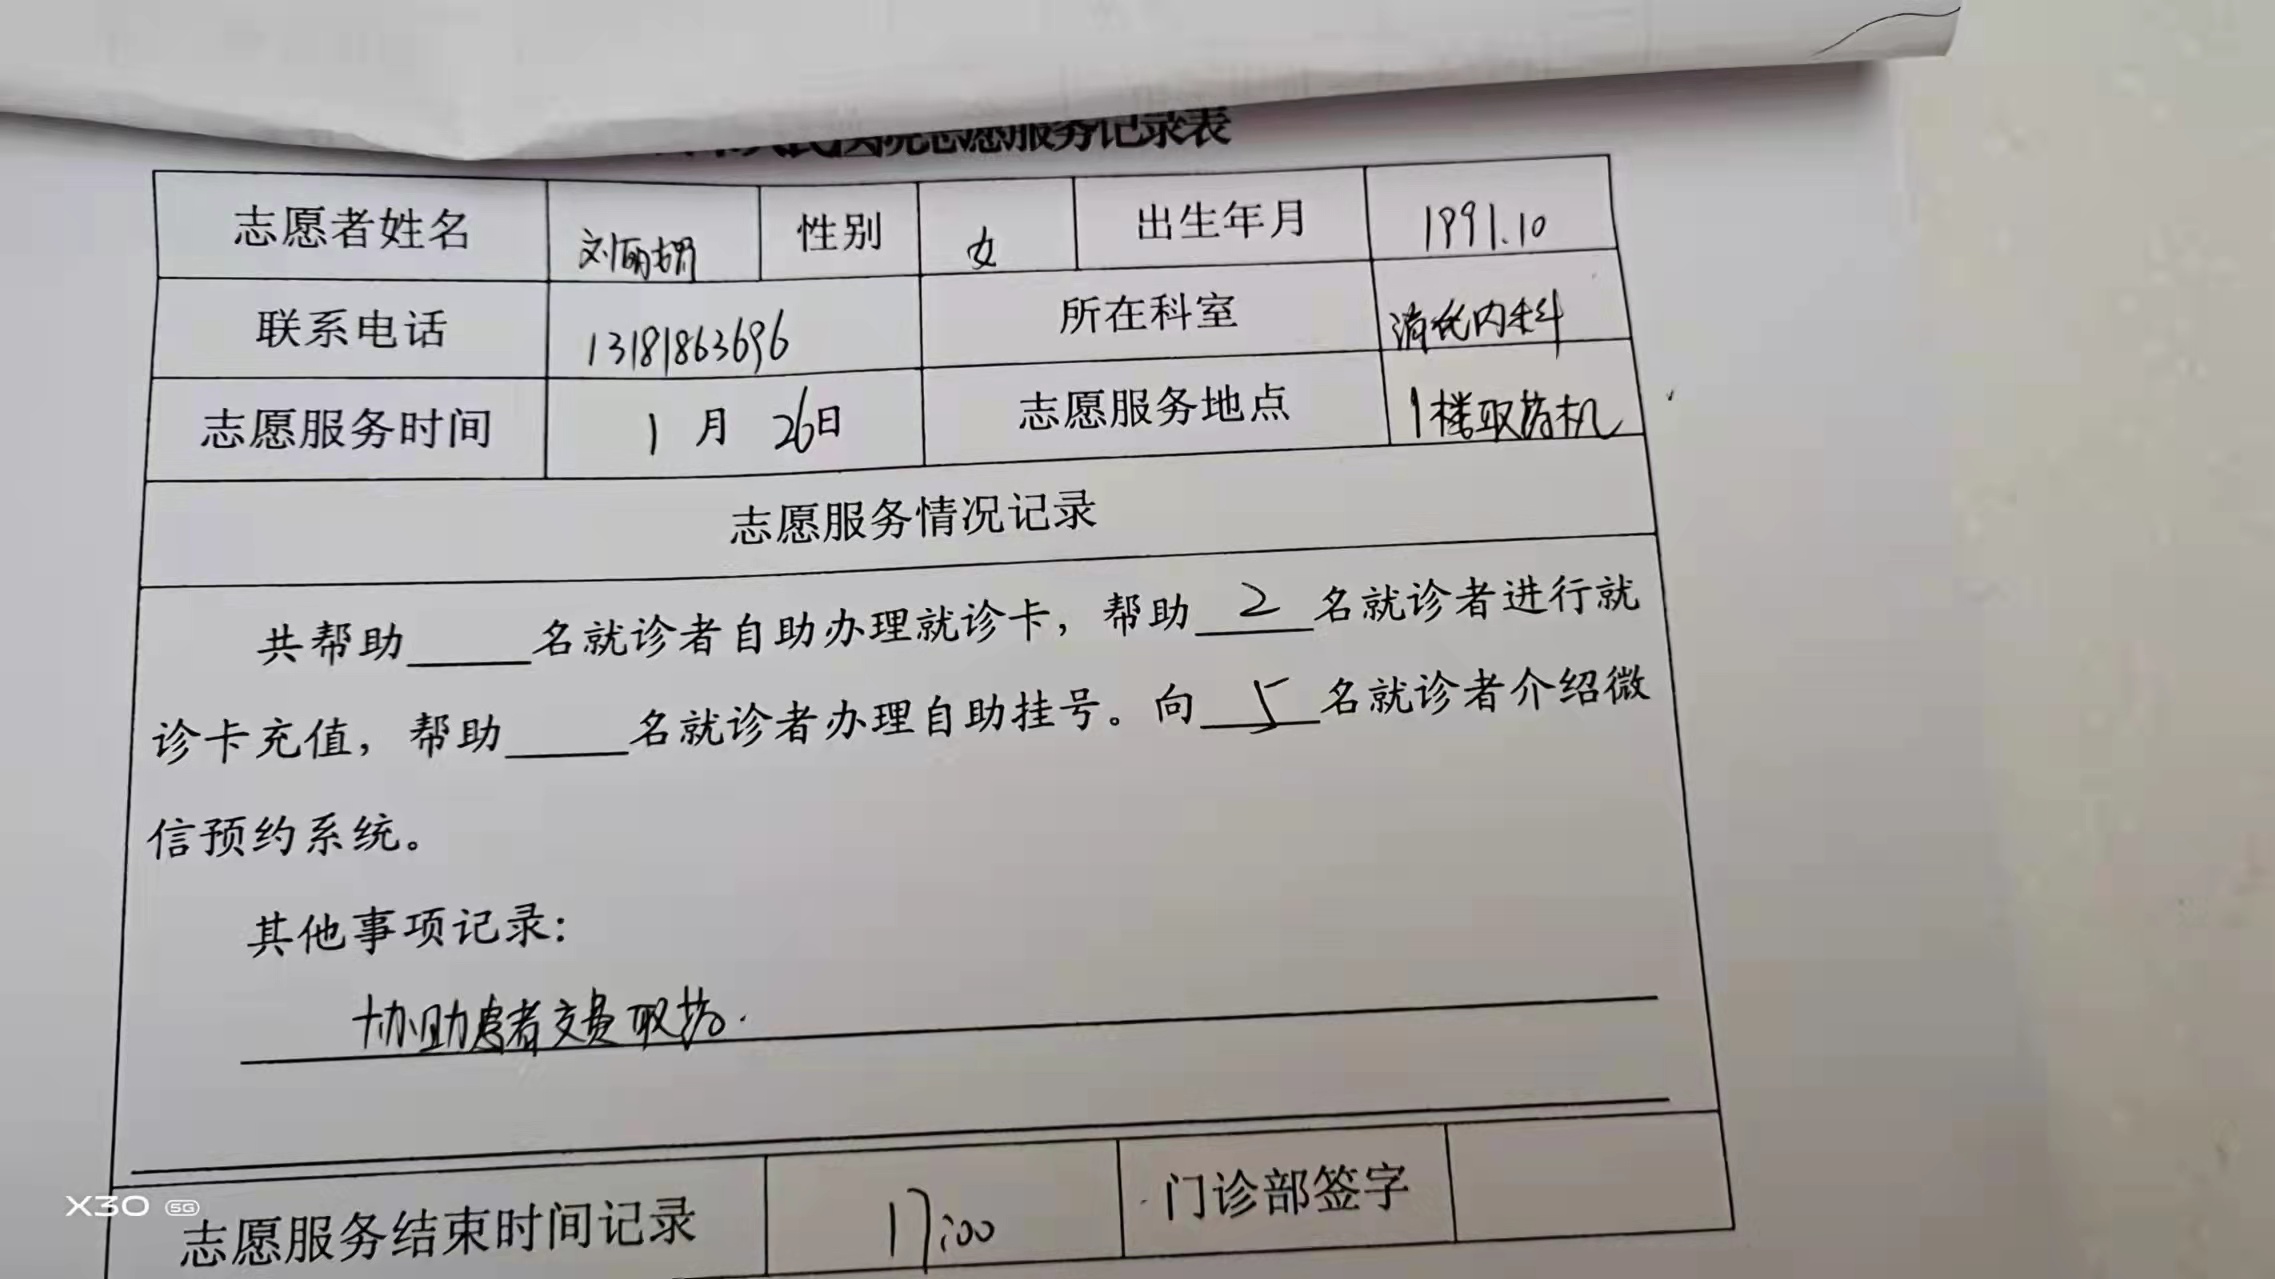 人民医院志愿服务记录表
志愿者姓名 刘丽娟 性别 女 出生年月 1991.10
联系电话 13181863696 所在科室 消化内科
志愿服务时间 1月26日 志愿服务地点 1楼取药机
志愿服务情况记录
共帮助____名就诊者自助办理就诊卡，帮助 2 名就诊者进行就
诊卡充值，帮助____名就诊者办理自助挂号。向 5 名就诊者介绍微
信预约系统。
其他事项记录：
协助患者交费取药.
志愿服务结束时间记录 17:00 门诊部签字
X30 5G